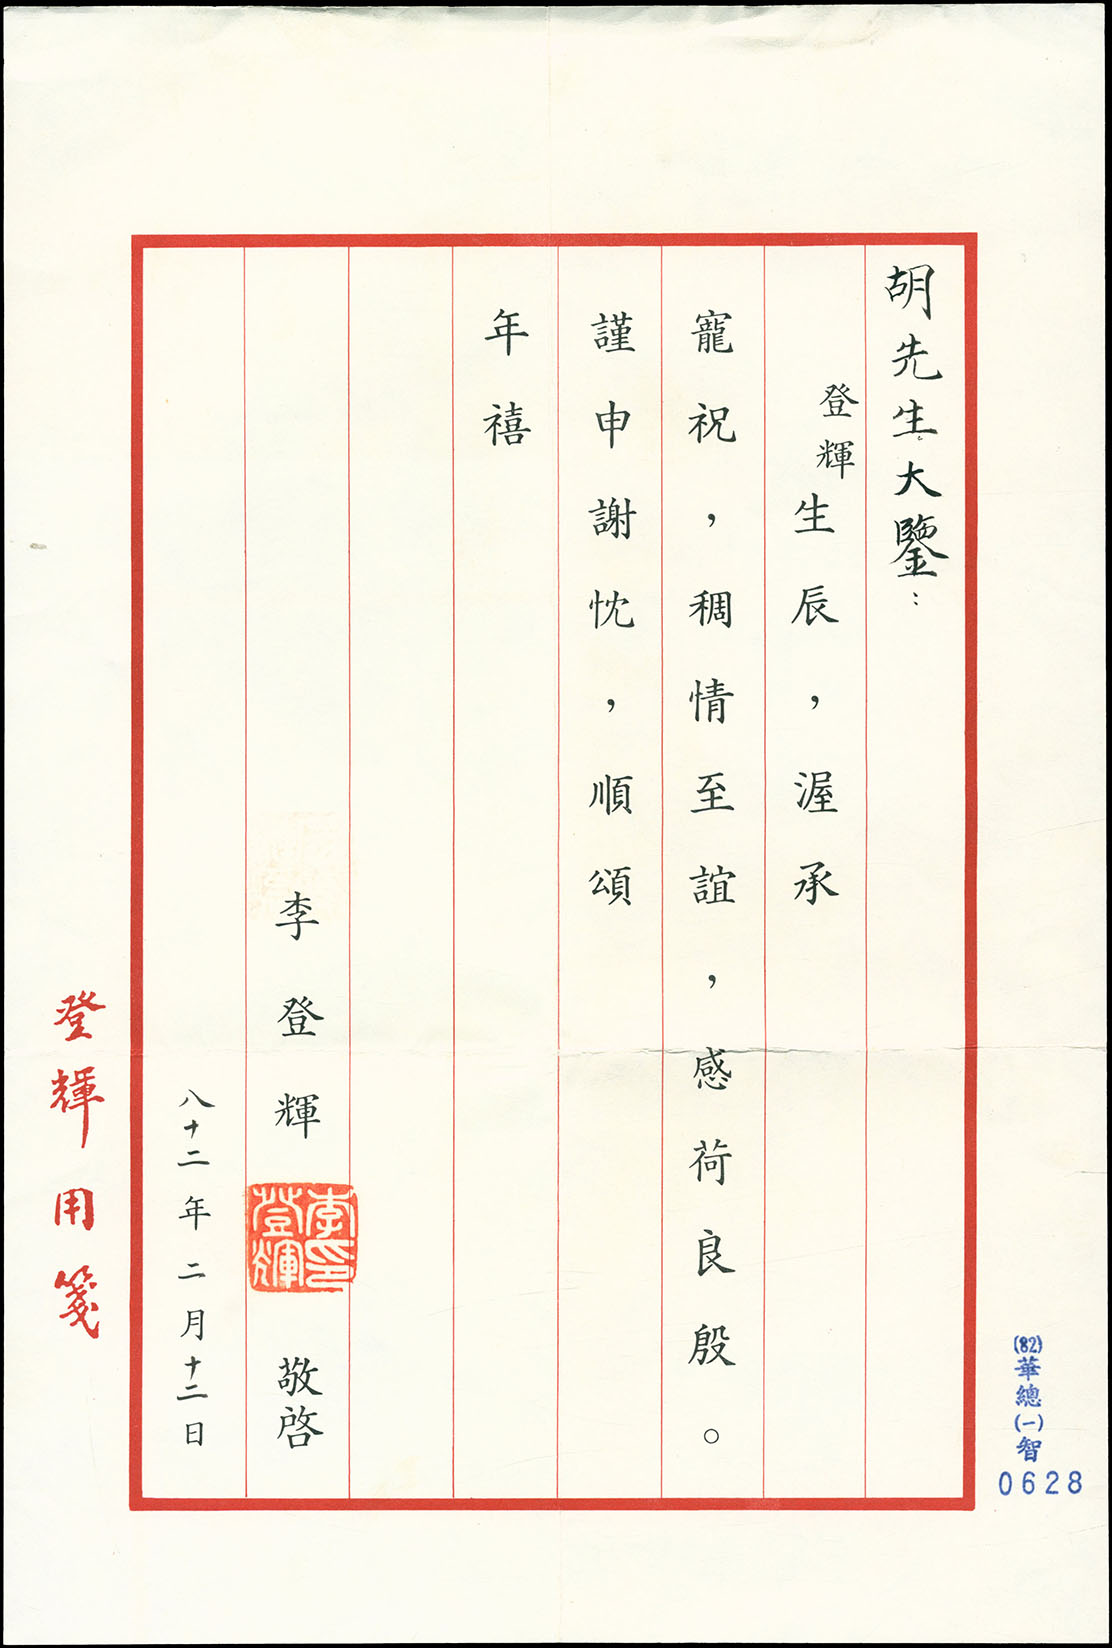 胡先生大鑒：
登輝生辰，渥承
寵祝，稠情至誼，感荷良殷。
謹申謝忱，順頌
年禧
李登輝 敬啓
李登輝印
八十二年二月十二日
登輝用箋
(82)華總(一)智
0628